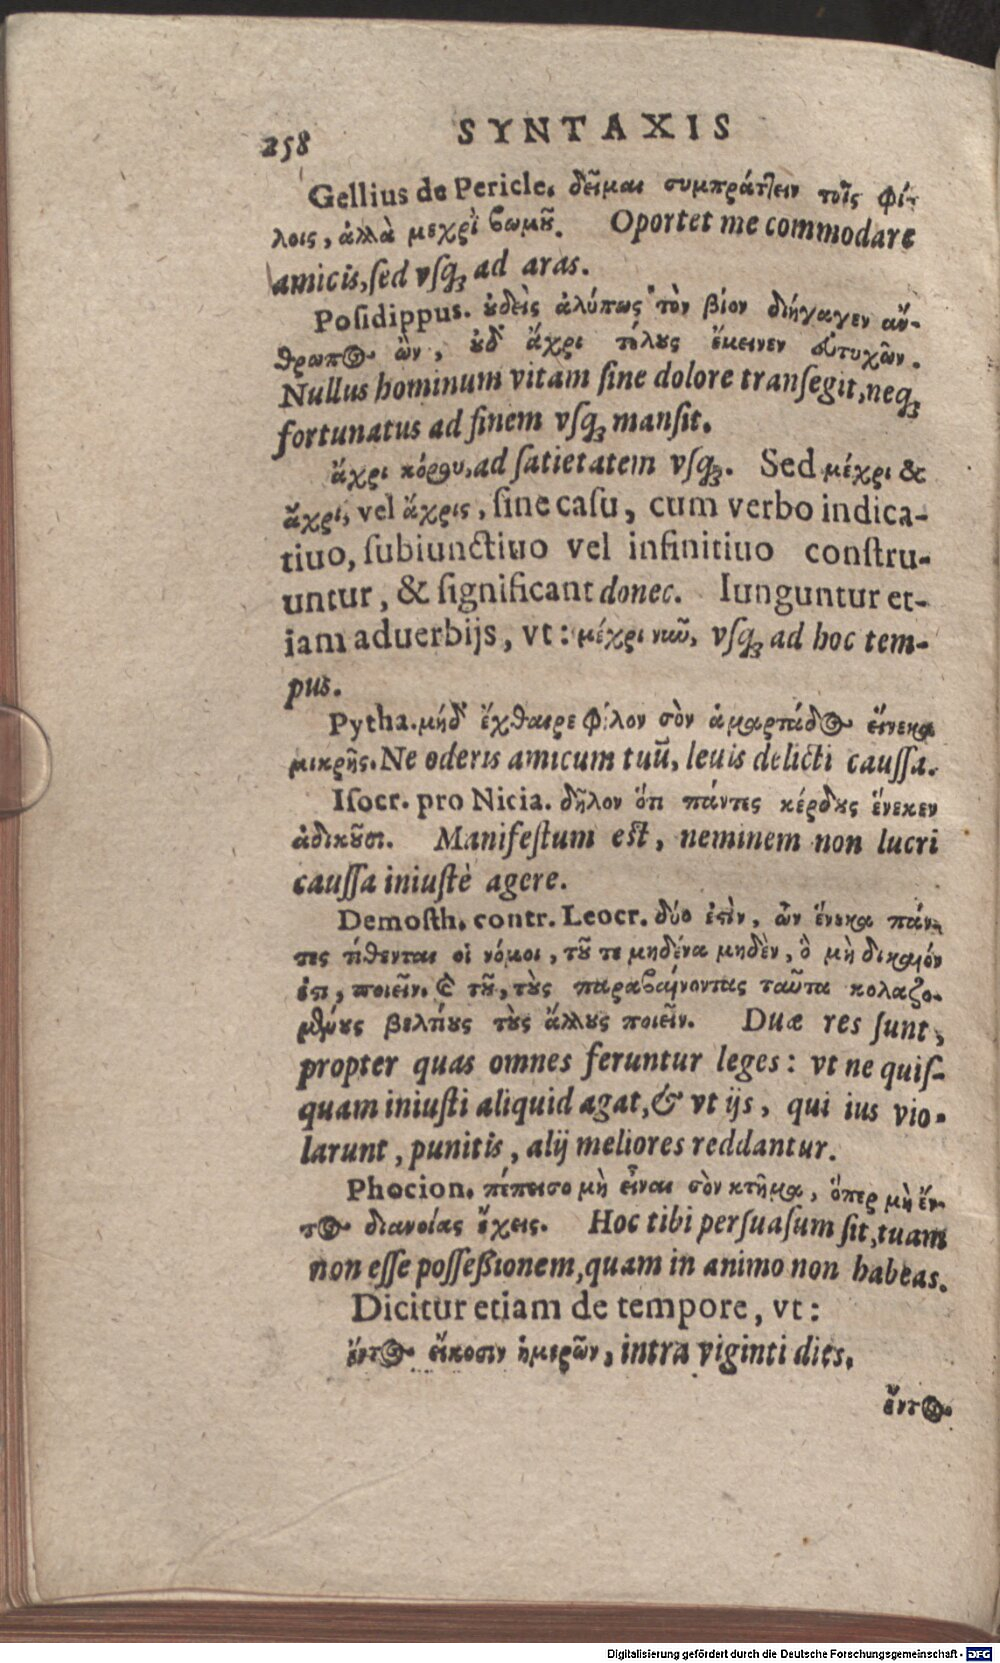 258 SYNTAXIS
Gellius de Pericle. δεῖμαι συμπράττειν τοῖς φί-
λοις, ἀλλὰ μεχρὶ βωμοῦ. Oportet me commodare
amicis, ſed vſq; ad aras.
Poſidippus. οὐδεὶς ἀλύπως τὸν βίον διήγαγεν ἄν-
θρωπος ὢν, οὐδ' ἄχρι τέλους ἔμεινεν εὐτυχῶν.
Nullus hominum vitam ſine dolore tranſegit, neq;
fortunatus ad finem vſq; manſit.
ἄχρι κόρου, ad ſatietatem vſq;. Sed μέχρι &
ἄχρι, vel ἄχρις, ſine caſu, cum verbo indica-
tiuo, ſubiunctiuo vel infinitiuo conſtru-
untur, & ſignificant donec. Iunguntur et-
iam aduerbijs, vt: μέχρι νῦν, vſq; ad hoc tem-
pus.
Pytha. μήδ' ἔχθαιρε φίλον σὸν ἁμαρτάδος εἵνεκα
μικρῆς. Ne oderis amicum tuū, leuis delicti cauſſa.
Iſocr. pro Nicia. δῆλον ὅτι πάντες κέρδους ἕνεκεν
ἀδικοῦσι. Manifeſtum eſt, neminem non lucri
cauſſa iniuſtè agere.
Demoſth. contr. Leocr. δύο ἐστὶν, ὧν ἕνεκα πάν-
τες τίθενται οἱ νόμοι, τοῦ τε μηδένα μηδὲν, ὃ μὴ δικαιόν
ἐστι, ποιεῖν. καὶ τοῦ, τοὺς παραβαίνοντας ταῦτα κολαζο-
μένους βελτίους τοὺς ἄλλους ποιεῖν. Duæ res ſunt,
propter quas omnes feruntur leges: vt ne quiſ-
quam iniuſti aliquid agat, & vt ijs, qui ius vio-
larunt, punitis, alij meliores reddantur.
Phocion. πέπεισο μὴ εἶναι σὸν κτῆμα, ὅπερ μὴ ἔν-
τος διανοίας ἔχεις. Hoc tibi perſuaſum ſit, tuam
non eſſe poſſeßionem, quam in animo non habeas.
Dicitur etiam de tempore, vt:
ἔντος εἴκοσιν ἡμερῶν, intra viginti dies.
ἔντος
Digitalisierung gefördert durch die Deutsche Forschungsgemeinschaft - DFG